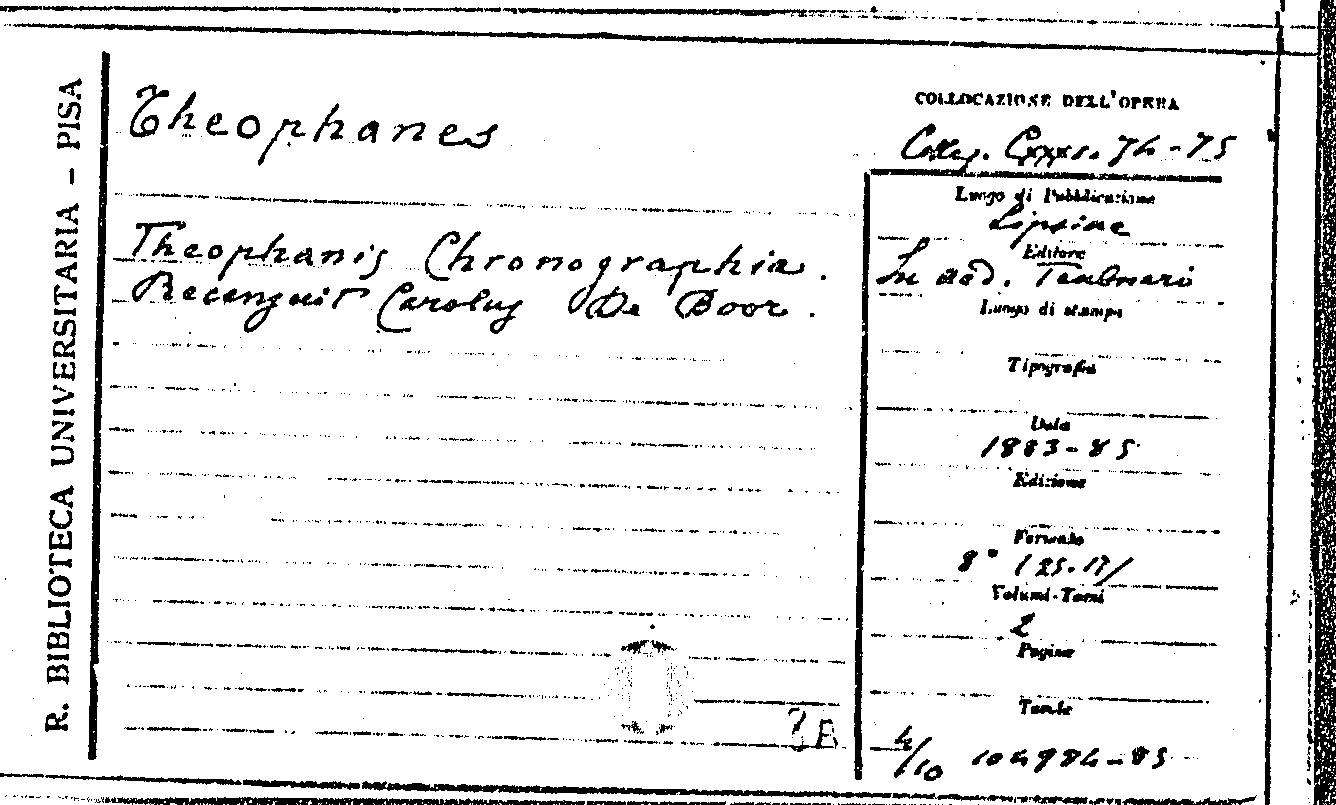 R. BIBLIOTECA UNIVERSITARIA - PISA
Theophanes
Theophanis Chronographia.
Recensuit Carolus De Boor.
COLLOCAZIONE DELL'OPERA
74-75
Luogo di Pubblicazione
Lipsiae
Editore
In aed. Teubneri
Luogo di stampa
Tipografia
Data
1883-85
Edizione
Formato
8°
Volumi-Tomi
2
Pagine
Tavole
4/10 104984-85